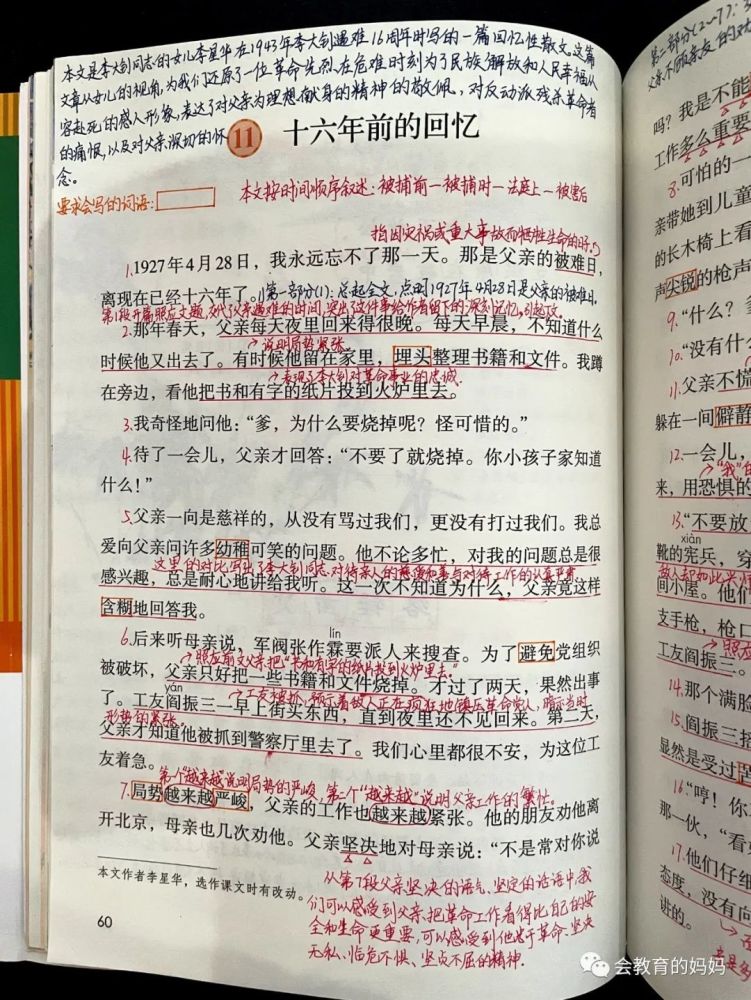 本文是李大钊同志的女儿李星华在1943年李大钊遇难16周年时写的一篇回忆性散文,这篇
文章从女儿的视角,为我们还原了一位革命先烈在危难时刻为了民族解放和人民幸福从
容赴死的感人形象,表达了对父亲为理想献身的精神的敬佩、对反动派残杀革命者
的痛恨,以及对父亲深切的怀
念。
11 十六年前的回忆
要求会写的词语:
本文按时间顺序叙述:被捕前—被捕时—法庭上—被害后
指因灾祸或重大事故而牺牲生命的日子
1.1927年4月28日,我永远忘不了那一天。那是父亲的被难日,
离现在已经十六年了。
第一部分(1):总起全文,点明1927年4月28日是父亲的被难日。
第1段开篇照应文题,交代了父亲遇难的时间,突出了这件事给作者留下的深刻记忆,引起下文。
2.那年春天,父亲每天夜里回来得很晚。每天早晨,不知道什么
说明局势紧张
时候他又出去了。有时候他留在家里,埋头整理书籍和文件。我蹲
表现了李大钊对革命事业的忠诚
在旁边,看他把书和有字的纸片投到火炉里去。
3.我奇怪地问他:“爹,为什么要烧掉呢?怪可惜的。”
4.待了一会儿,父亲才回答:“不要了就烧掉。你小孩子家知道
什么!”
5.父亲一向是慈祥的,从没有骂过我们,更没有打过我们。我总
爱向父亲问许多幼稚可笑的问题。他不论多忙,对我的问题总是很
这里的对比写出了李大钊同志对待亲人的慈爱和善与对待工作的认真严肃
感兴趣,总是耐心地讲给我听。这一次不知道为什么,父亲竟这样
含糊地回答我。
lín
6.后来听母亲说,军阀张作霖要派人来搜查。为了避免党组织
照应前文父亲把“书和有字的纸片投到火炉里去。”
被破坏,父亲只好把一些书籍和文件烧掉。才过了两天,果然出事
yán
工友被抓,预示着敌人正在疯狂地镇压革命党人,暗示当时
形势的紧张。
了。工友阎振三一早上街头东西,直到夜里还不见回来。第二天,
父亲才知道他被抓到警察厅里去了。我们心里都很不安,为这位工
友着急。
第一个“越来越”说明局势的严峻,第二个“越来越”说明父亲工作的繁忙。
7.局势越来越严峻,父亲的工作也越来越紧张。他的朋友劝他离
开北京,母亲也几次劝他。父亲坚决地对母亲说:“不是常对你说
本文作者李星华,选作课文时有改动。
60
从第7段父亲坚决的语气、坚定的话语中,我
们可以感受到父亲把革命工作看得比自己的安
全和生命更重要,可以感受到他忠于革命、坚决
无私、临危不惧、坚贞不屈的精神.
第二部分(2~7):
父亲不顾亲友的劝
吗?我是不能
工作多么重要
8.可怕的一
亲带她到儿童
的长木椅上看
声尖锐的枪声
9.“什么?
10.“没有什么
11.父亲不慌
躲在一间僻静
12.一会儿,
来,用恐惧的
13.“不要放
xiàn
靴的宪兵,穿
间小屋。他们
支手枪,枪口
工友阎振三。
14.那个满脸
15.阎振三
显然是受过
16.“哼!你
那一伙,“看
17.他们仔细
态度,没有向
讲的。
会教育的妈妈